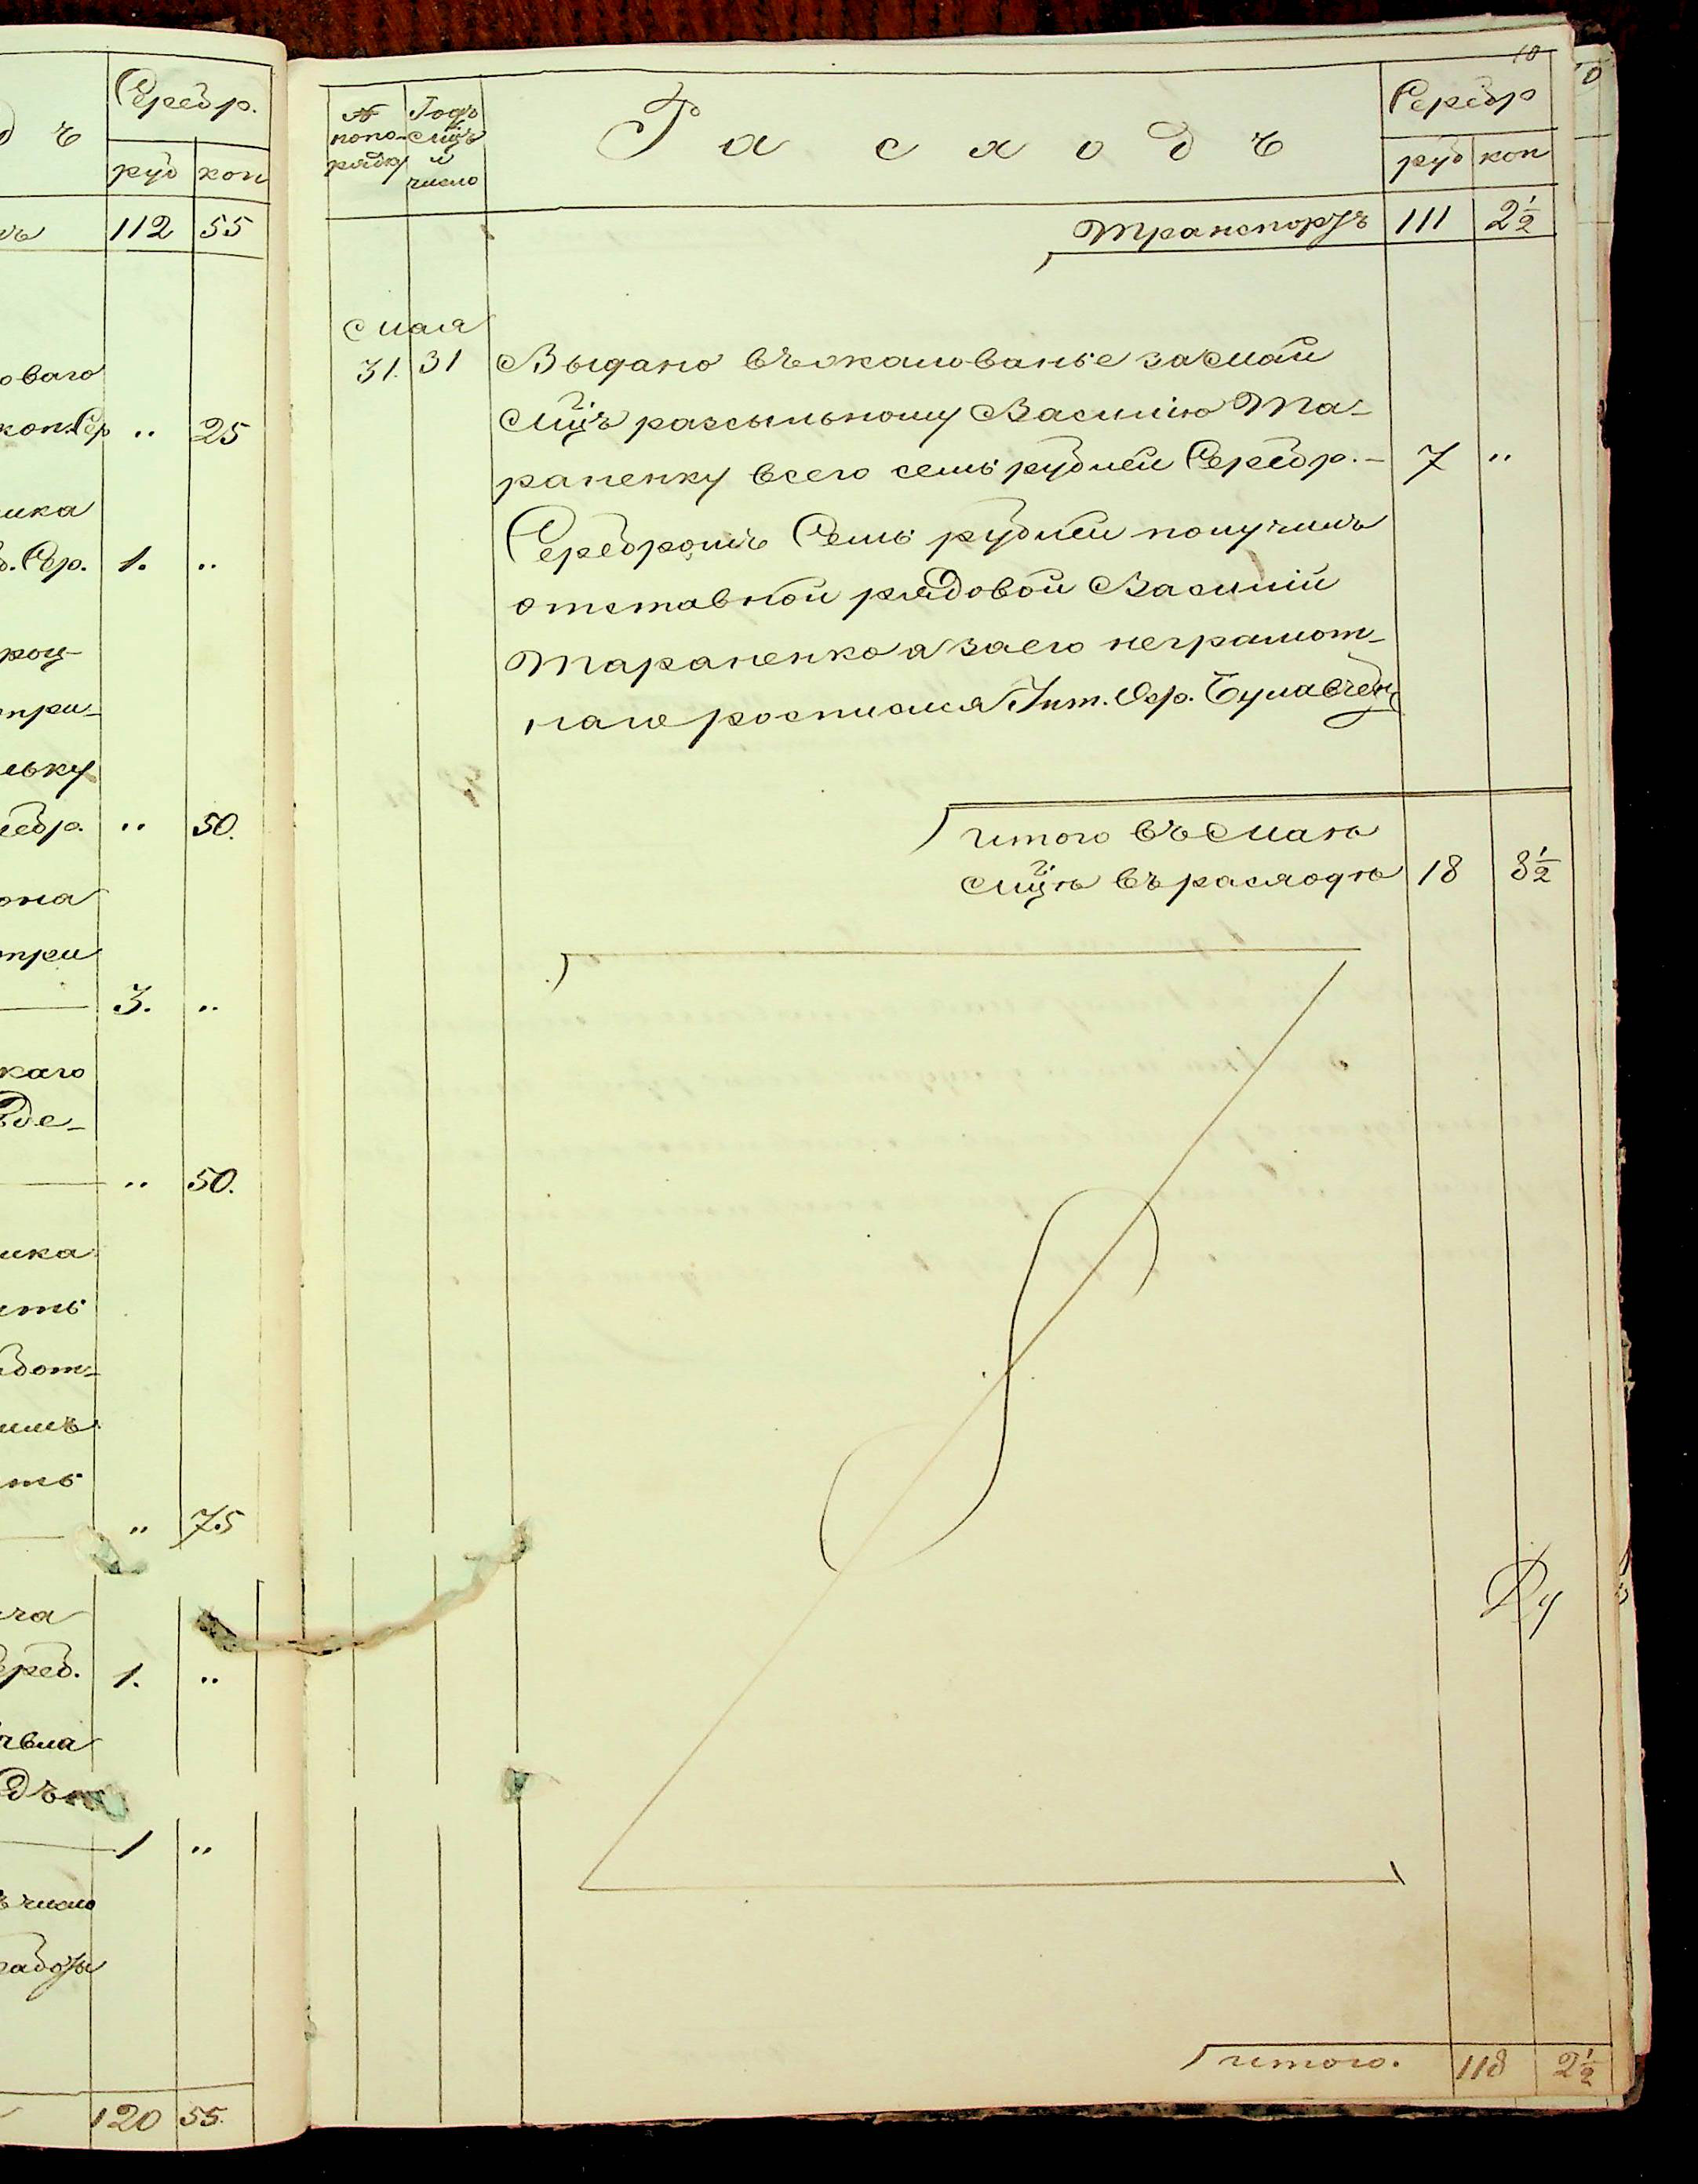 ъ
Серебр.
руб коп
112 55
оваго
коп. Сер „ 25
ика
б. Сер. 1. „
роц-
три-
льку
ребр. „ 50.
она
три
3. „
каго
де-
„ 50.
ика
ять
бот-
илъ
ять
„ 75
ча
ереб. 1. „
1 „
число
работы
120 55.
10
№ попо-рядку
Годъ мцъ и число
Расходъ
Серебр
руб коп
Транспортъ 111 2½
Мая
31. 31 Выдано въ жалованье за Май
Мцъ разсыльному Василию Та-
раненку всего семь рублей Серебр. - 7 „
Серебромъ Семь рублей получилъ
отставной рядовой Василий
Тараненко а за его неграмот-
наго росписался Унт. Офр.
Итого въ Маѣ
Мцѣ въ расходѣ 18 8½
Итого. 118 2½